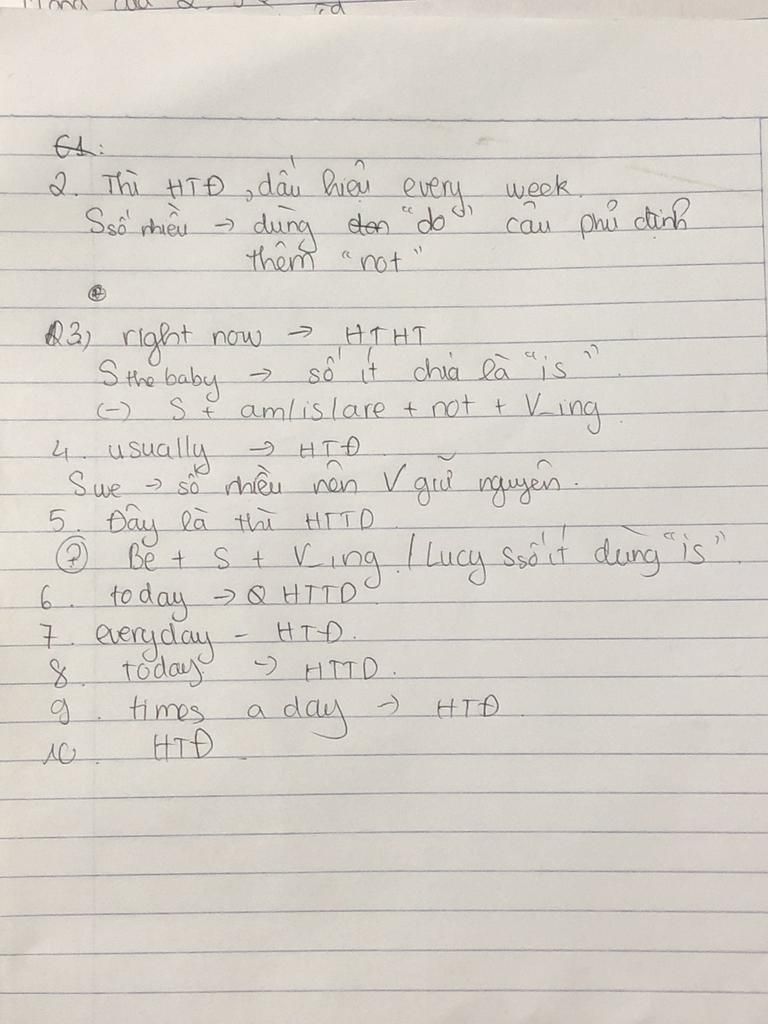 2. Thì HTĐ, dấu hiệu every week.
S số nhiều → dùng "do" câu phủ định
thêm "not"
Q3) right now → HTHT
S the baby → số ít chia là "is".
(-) S + am/is/are + not + V_ing.
4. usually → HTĐ
S we → số nhiều nên V giữ nguyên.
5. Đây là thì HTTD
(?) Be + S + V_ing. / Lucy S số ít dùng "is".
6. today → HTTD
7. everyday - HTĐ.
8. today. → HTTD.
9. times a day → HTĐ
10. HTĐ